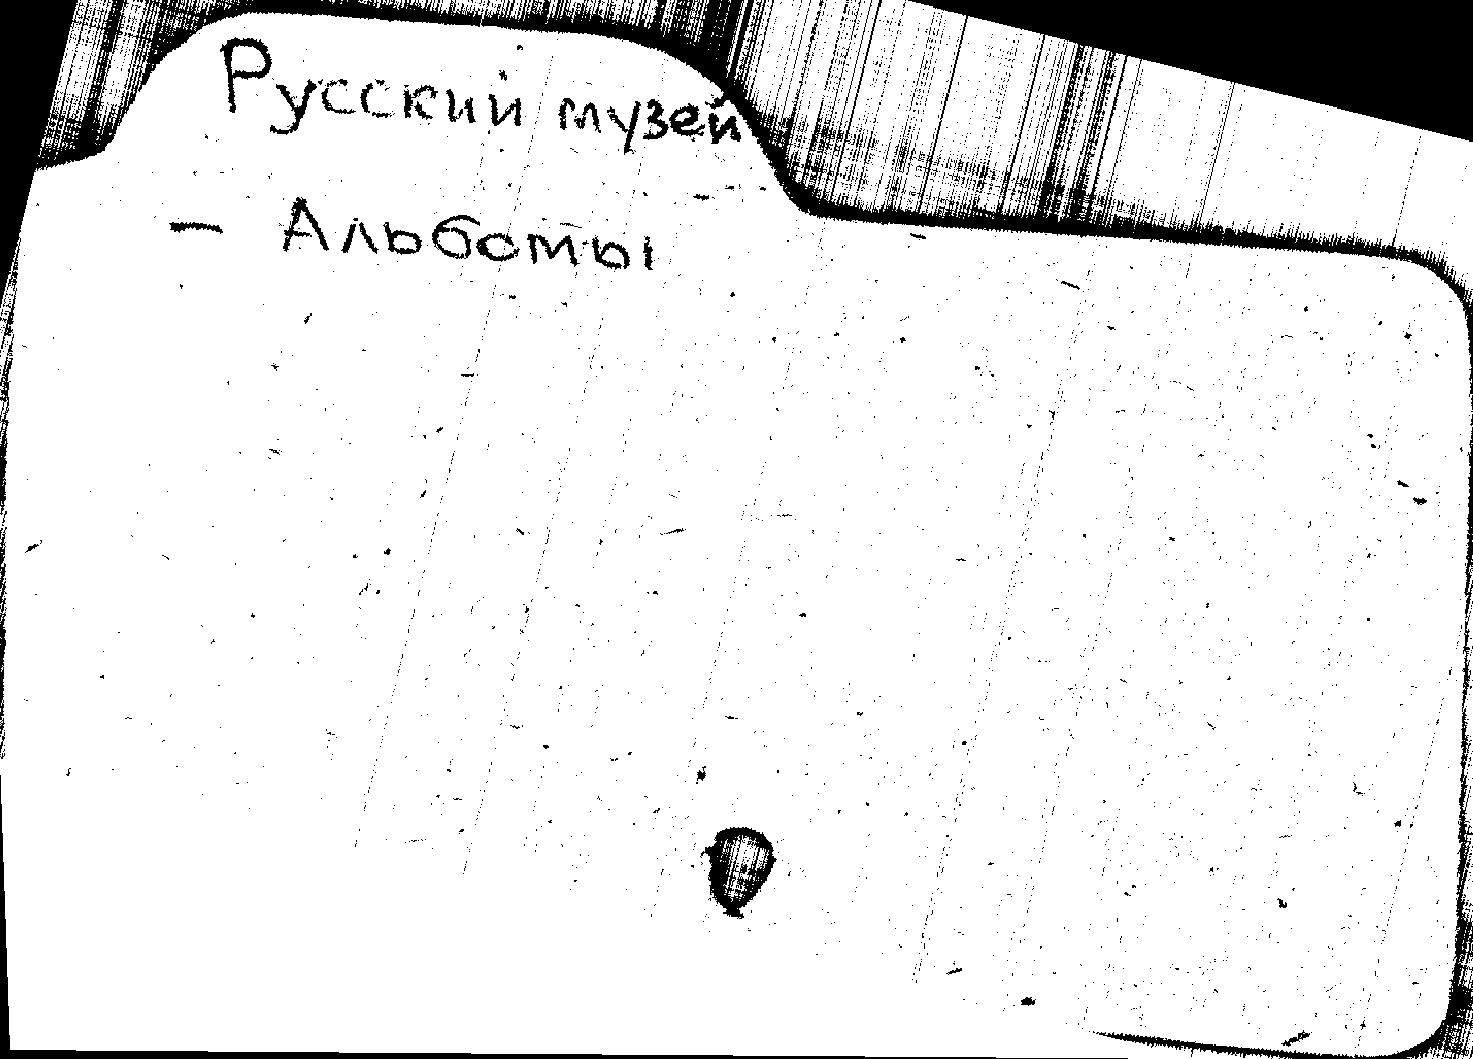 Русский музей
— Альбомы